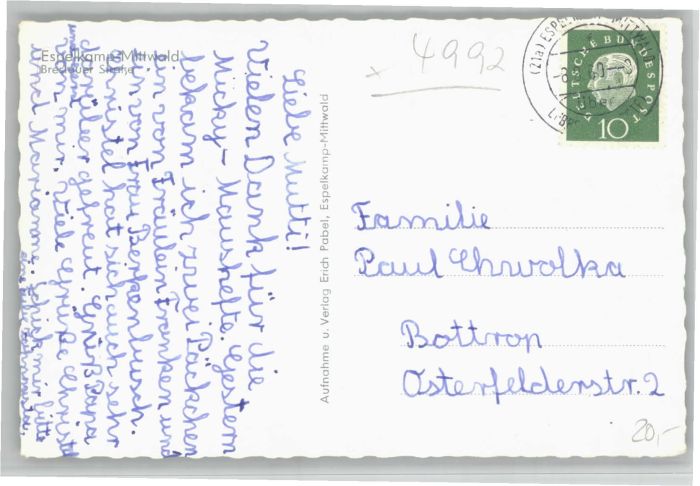 Espelkamp-Mittwald
Breslauer Straße
x 4992
(21a) ESPELKAMP-MITTWALD
DEUTSCHE BUNDESPOST
10
Liebe Mutti!
Vielen Dank für die
Micky-Maushefte. Gestern
bekam ich zwei Päckchen
ein von Fräulein Franken und
ein von Frau Berkenbusch.
Christel hat sich auch sehr
darüber gefreut. Grüß Papa
von mir. Viele Grüße Christel
und Marianne. Schick mir bitte
Aufnahme u. Verlag Erich Pabel, Espelkamp-Mittwald
Familie
Paul Chwolka
Bottrop
Osterfelderstr. 2
20,-